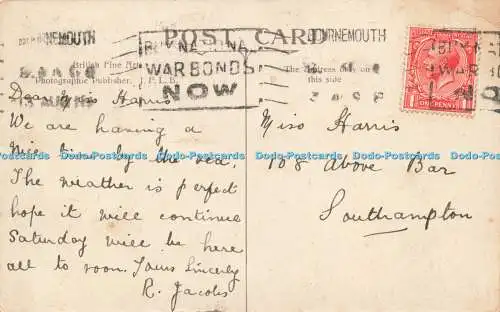 POST CARD
BOURNEMOUTH
BUY NATIONAL
WAR BONDS
NOW
BOURNEMOUTH
British Fine Art
Photographic Publisher, J.P.L.B.
The Address only on
this side
ONE PENNY
Dear Miss Harris
We are having a
nice time by the sea.
The weather is perfect
hope it will continue
Saturday will be here
all to soon. Yours Sincerly
R. Jacobs
Miss Harris
108 Above Bar
Southampton
Dodo-Postcards Dodo-Postcards Dodo-Postcards Dodo-Postcards Dodo-Postcards
Dodo-Postcards Dodo-Postcards Dodo-Postcards Dodo-Postcards Dodo-Postcards